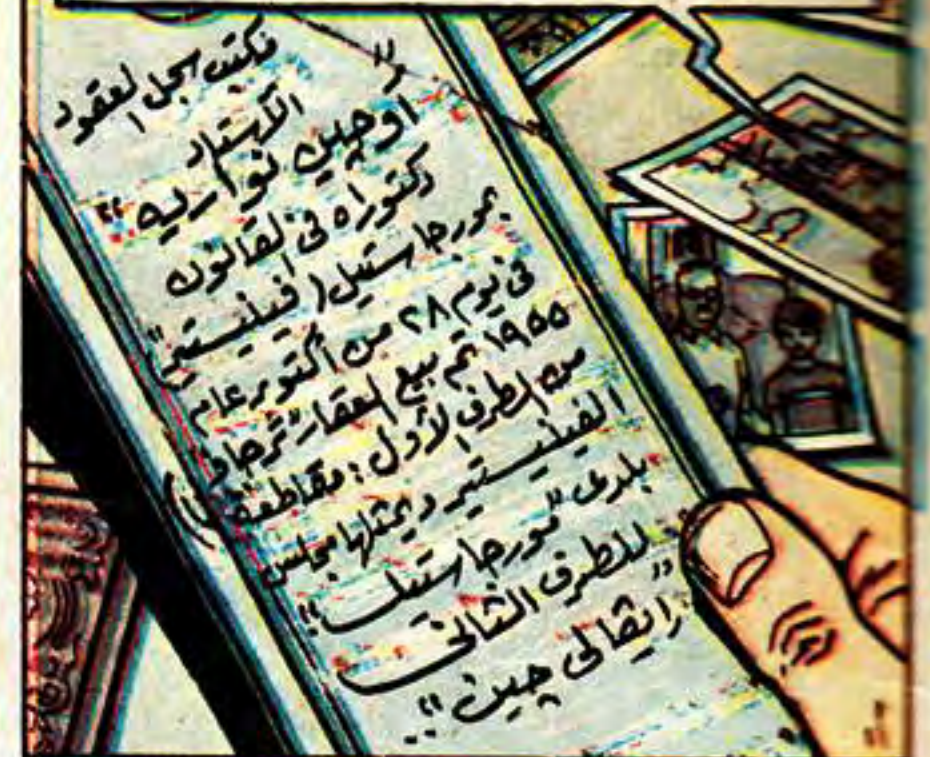 مكتب سجل العقود
الأستاذ
"أوچين نواريه"
دكتوراه فى القانون
بمورجاستيل (فينيستير)
فى يوم ٢٨ من أكتوبر عام
١٩٥٥ تم بيع العقار
من الطرف الأول: مقاطعة
الفينيستير ويمثلها مجلس
بلدى "مورجاستيل"
للطرف الثانى
"رانقالى چين"..